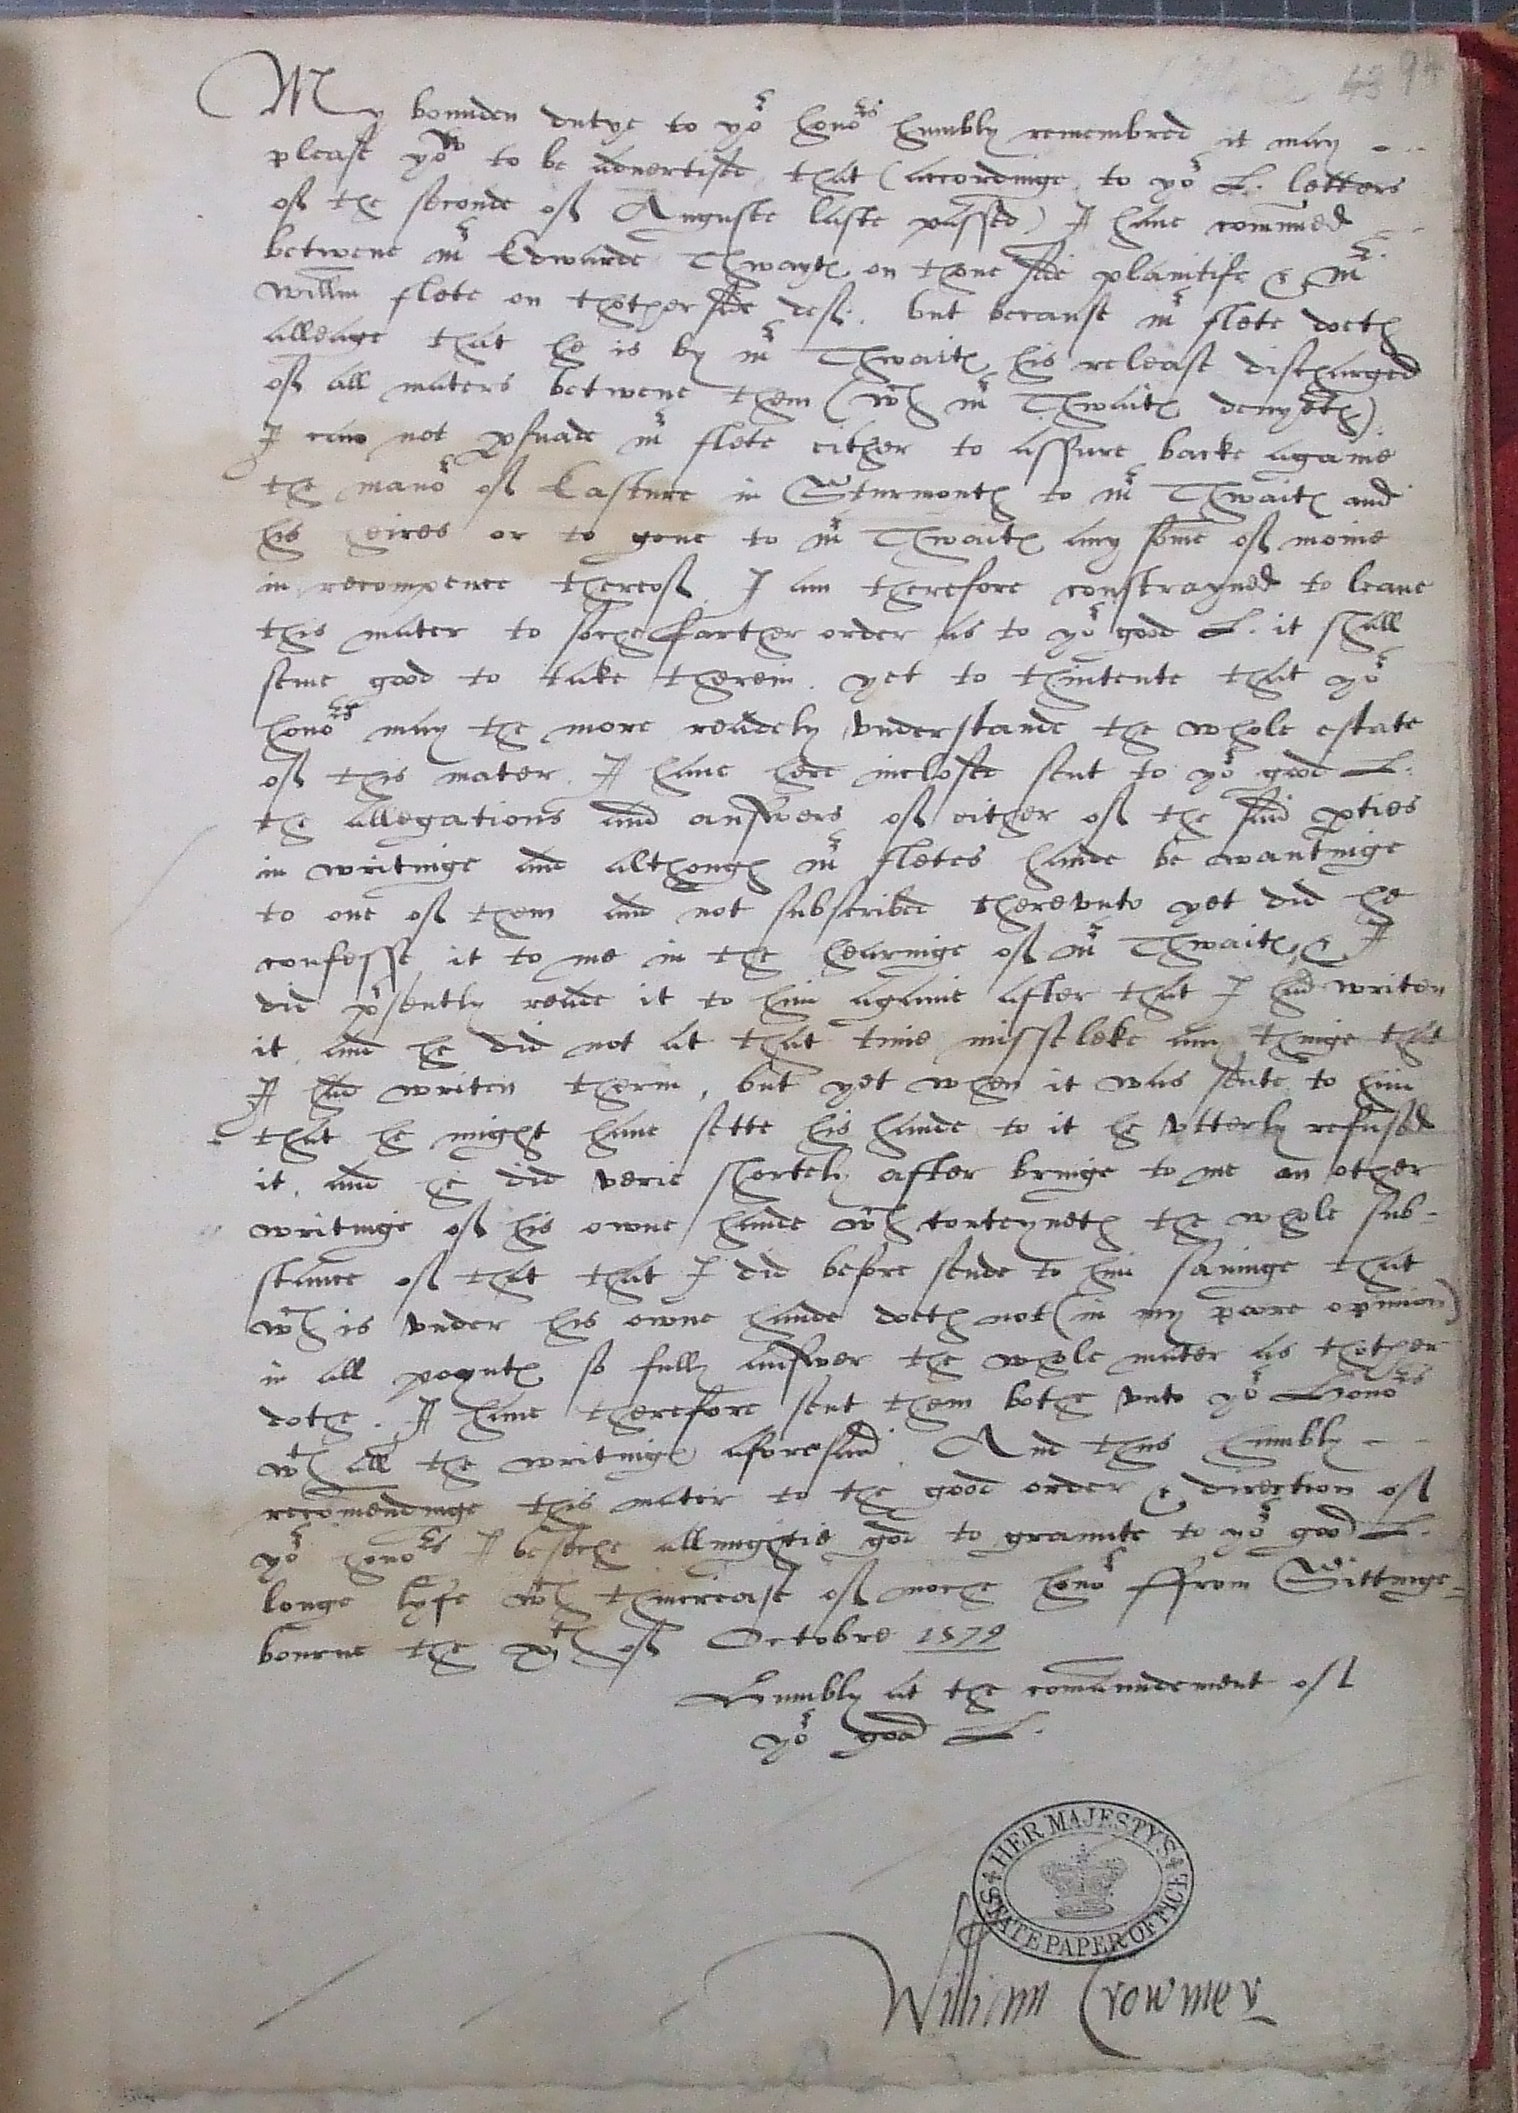 43 94
My bounden dutye to yor honors humbly remembred it may
please yow to be advertised that (accordinge to yor L. letters
of the seconde of Auguste laste passed) I have commned
betwene mr Edwarde Thwayts on thone side plaintife & mr
Willm flete on thother side def. but because mr flete doeth
alleage that he is by mr Thwaits his release discharged
of all maters betwene them (wch mr Thwaits denyeth)
I can not pswade mr flete either to assure backe againe
the manor of Easture in Sturmouth to mr Thwaits and
his heires or to geve to mr Thwaits any some of monie
in recompence thereof. I am therefore constrayned to leave
this mater to soche farther order as to yor good L. it shall
seme good to take therein. yet to thintente that yor
honors may the more readely understande the whole estate
of this mater. I have here inclosed sent to yor good L.
the allegations and answers of either of the said pties
in writinge and although mr fletes hande be wantinge
to one of them and not subscribed therevnto yet did he
confesse it to me in the hearinge of mr Thwaits, & I
did psently reade it to him againe after that I had writen
it and he did not at that time missleke any thinge that
I had writen therin, but yet when it was sente to him
that he might have sette his hande to it he vtterly refused
it. and he did verie shortely after bringe to me an other
writinge of his owne hande wch conteyneth the whole sub-
stance of that that I did before sende to him savinge that
wch is vnder his owne hande doeth not (in my poore opinion)
in all poynts so fully answer the whole mater as thother
dothe. I have therefore sent them bothe vnto yor Honors
wth all the writings aforesaid. And thus humbly
recomendinge this mater to the good order & direction of
yor honors I beseche allmightie god to graunte to yor good L.
longe lyfe wth thincrease of moche honor ffrom Sittinge-
bourne the xth of Octobre 1579
Humbly at the comaundement of
yor good L.
HER MAJESTY'S STATE PAPER OFFICE
William Crowmer